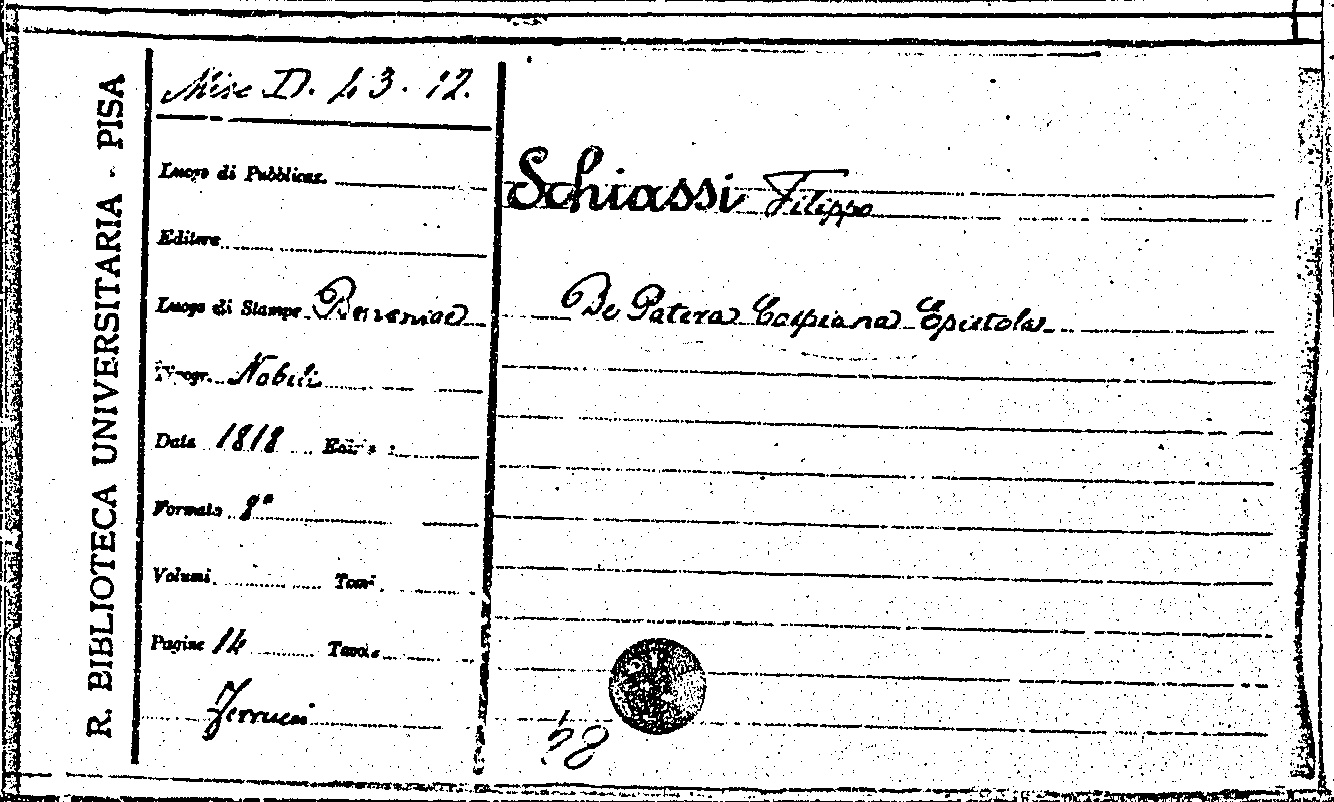 R. BIBLIOTECA UNIVERSITARIA - PISA
Misc D. 43. 12.
Luogo di Pubblicaz.
Editore
Luogo di Stampa
Tipogr. Nobili
Data 1818 Ediz.
Formato 8°
Volumi Tomi
Pagine 14 Tavole
Ferrucci
Schiassi Filippo
De Patera Cospiana Epistola